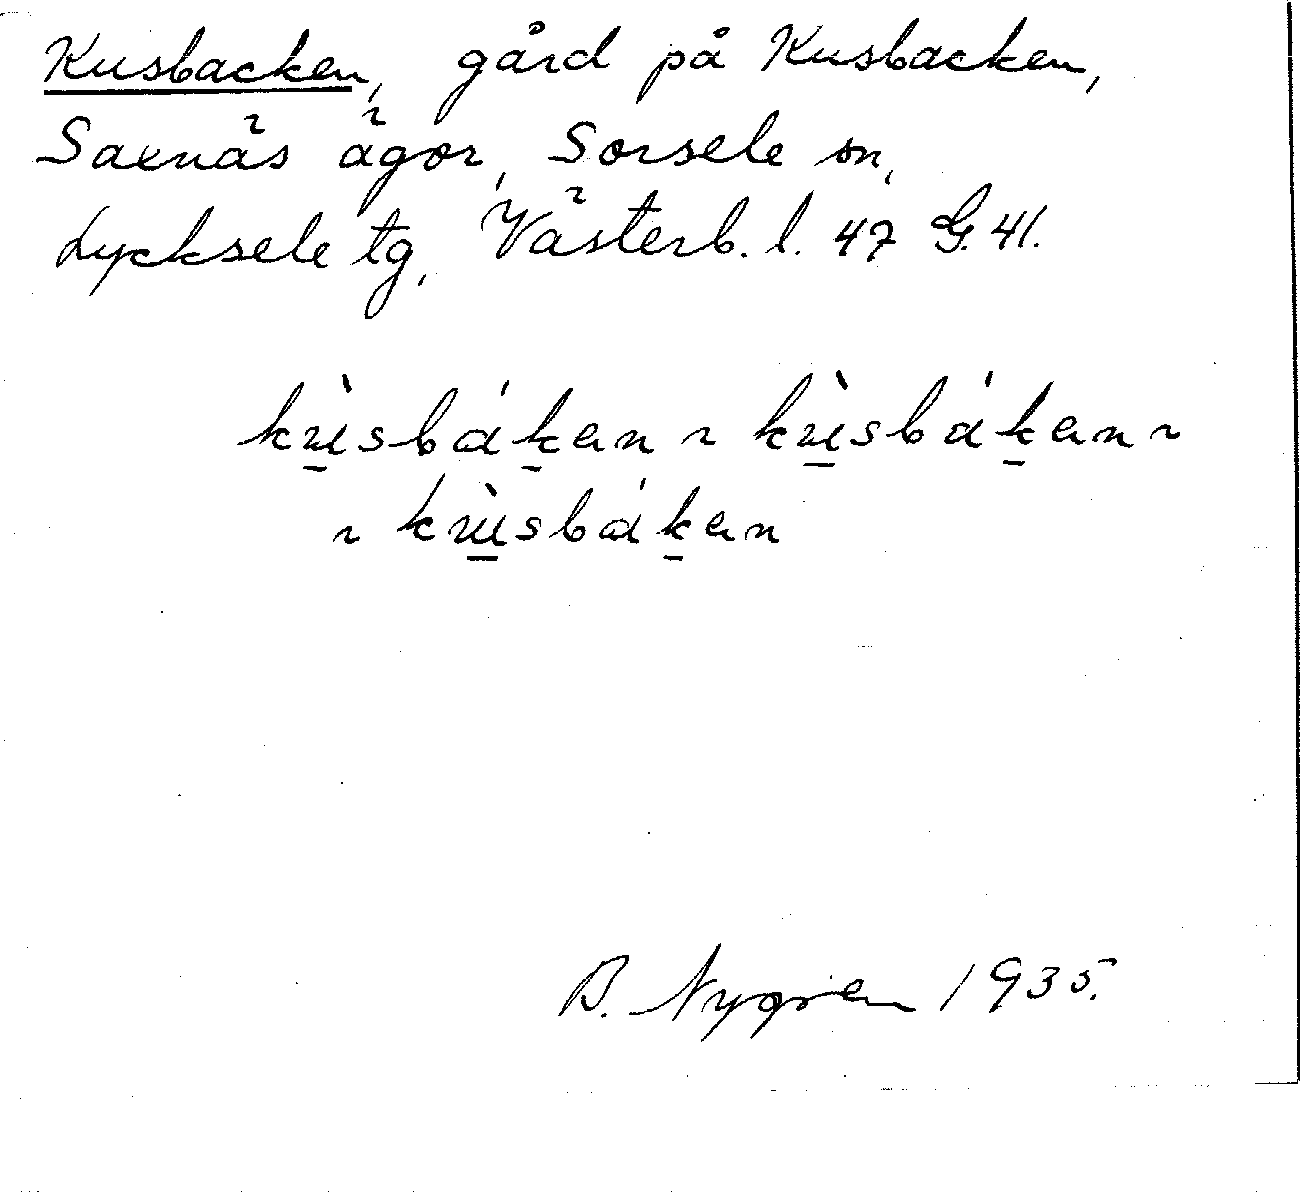 Kusbacken, gård på Kusbacken,
Saxnäs ägor, Sorsele sn,
Lycksele tg, Västerb. l. 47 G. 41.
kù̱sbáḵen ~ kù̱sbáḵen ~
~ kù̱sbáḵen
B. Nygren 1935.